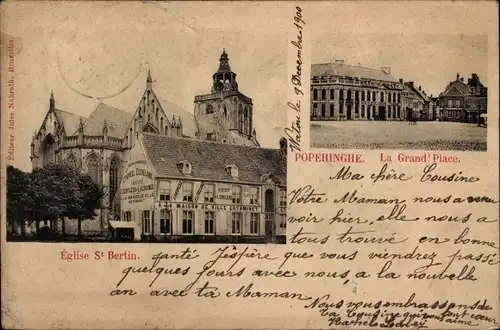 Editeur Jules Nahrath, Bruxelles
Watou le 9 Decembre 1900
POPERINGHE. La Grand' Place.
Église St Bertin.
Ma chère Cousine
Votre Maman nous a venu
voir hier, elle nous a
tous trouvé en bonne
santé j'espère que vous viendrez passé
quelques jours avec nous, a la nouvelle
an avec ta Maman.
Nous vous embrassons de
ta Cousine qui vous tout cœur